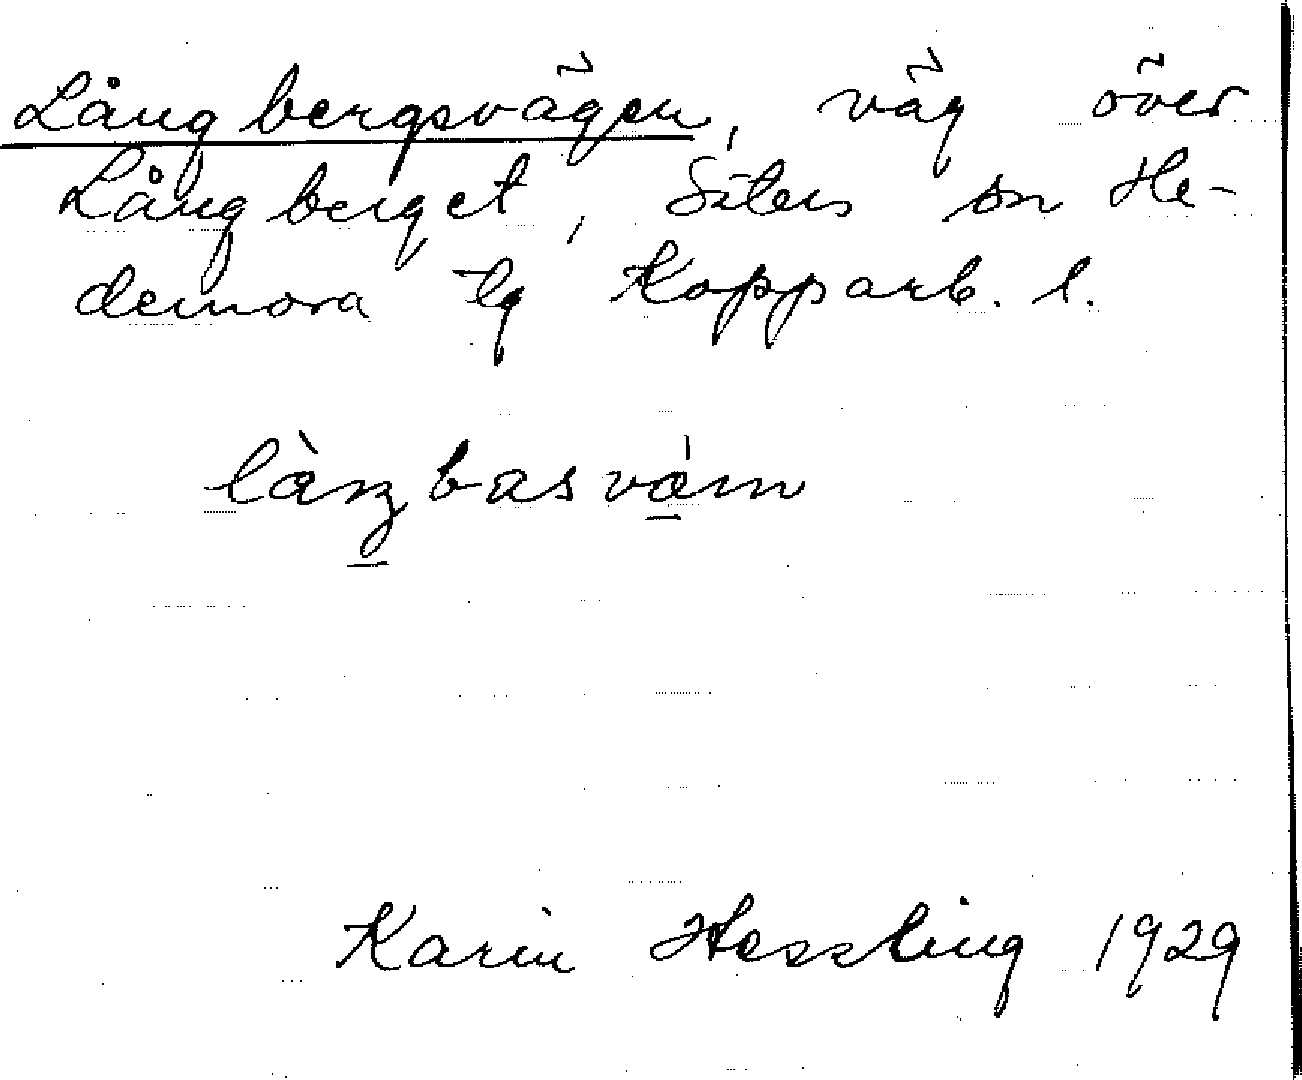 Långbergsvägen, väg över
Långberget, Säters sn He-
demora tg Kopparb. l.
làŋbasvám
Karin Hessling 1929